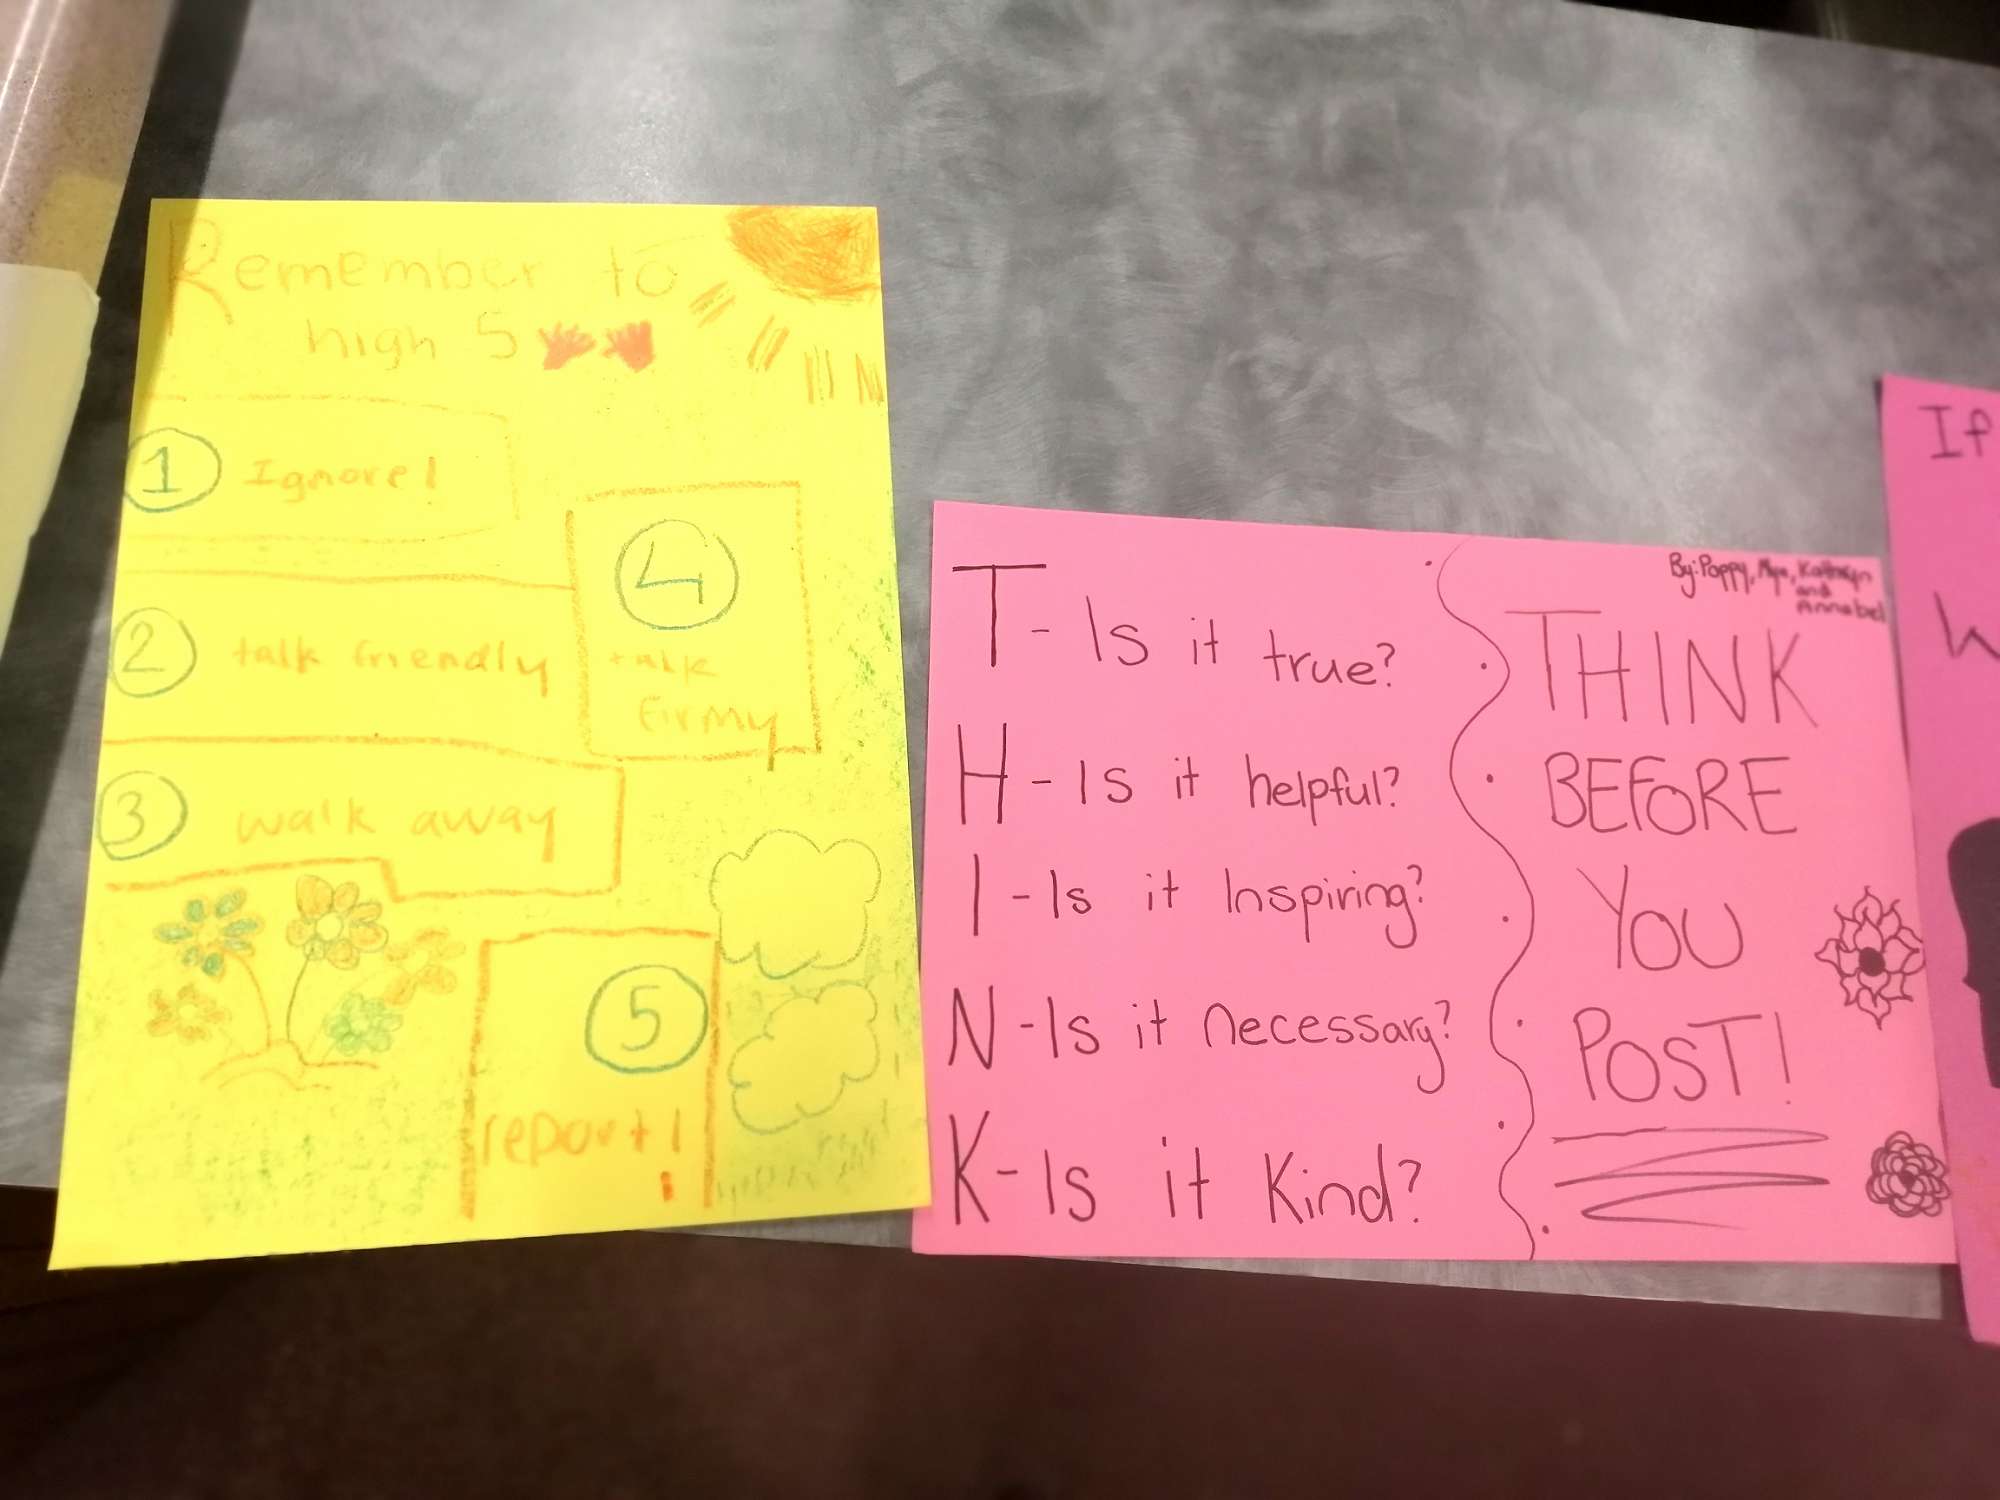 Remember to
high 5
1 Ignore!
2 talk friendly
3 walk away
4
talk
firmy
5
report!
T- Is it true?
H-Is it helpful?
I-Is it Inspiring?
N-Is it necessary?
K-Is it Kind?
By: Poppy, Mya, Kathryn
and
Annabel
THINK
BEFORE
YOU
POST!
If
W